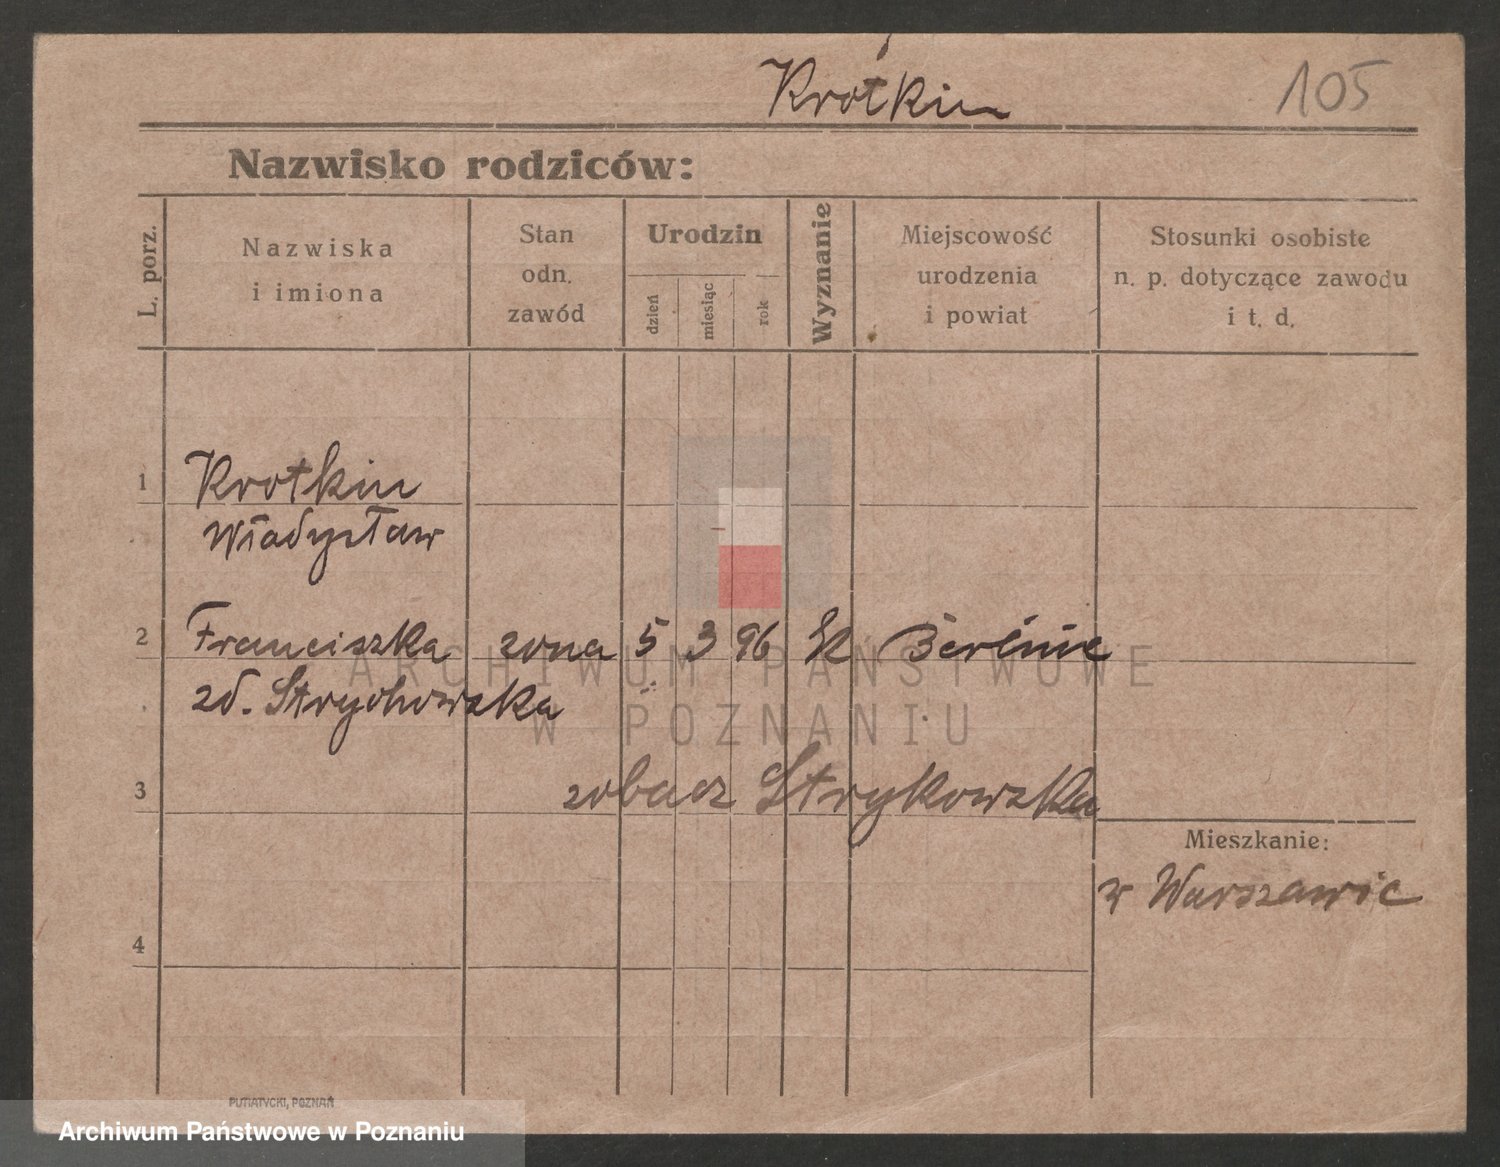 Krotkin 105
Nazwisko rodziców:
L. porz.
Nazwiska
i imiona
Stan
odn.
zawód
Urodzin
dzień
miesiąc
rok
Wyznanie
Miejscowość
urodzenia
i powiat
Stosunki osobiste
n. p. dotyczące zawodu
i t. d.
1 Krotkin
Władysław
2 Franciszka zona 5 3 96 K Berlinie
zd. Strychowska
3 zobacz Strykowska
Mieszkanie:
w Warszawie
4
ARCHIWUM PAŃSTWOWE
W POZNANIU
PUTIATYCKI, POZNAŃ
Archiwum Państwowe w Poznaniu